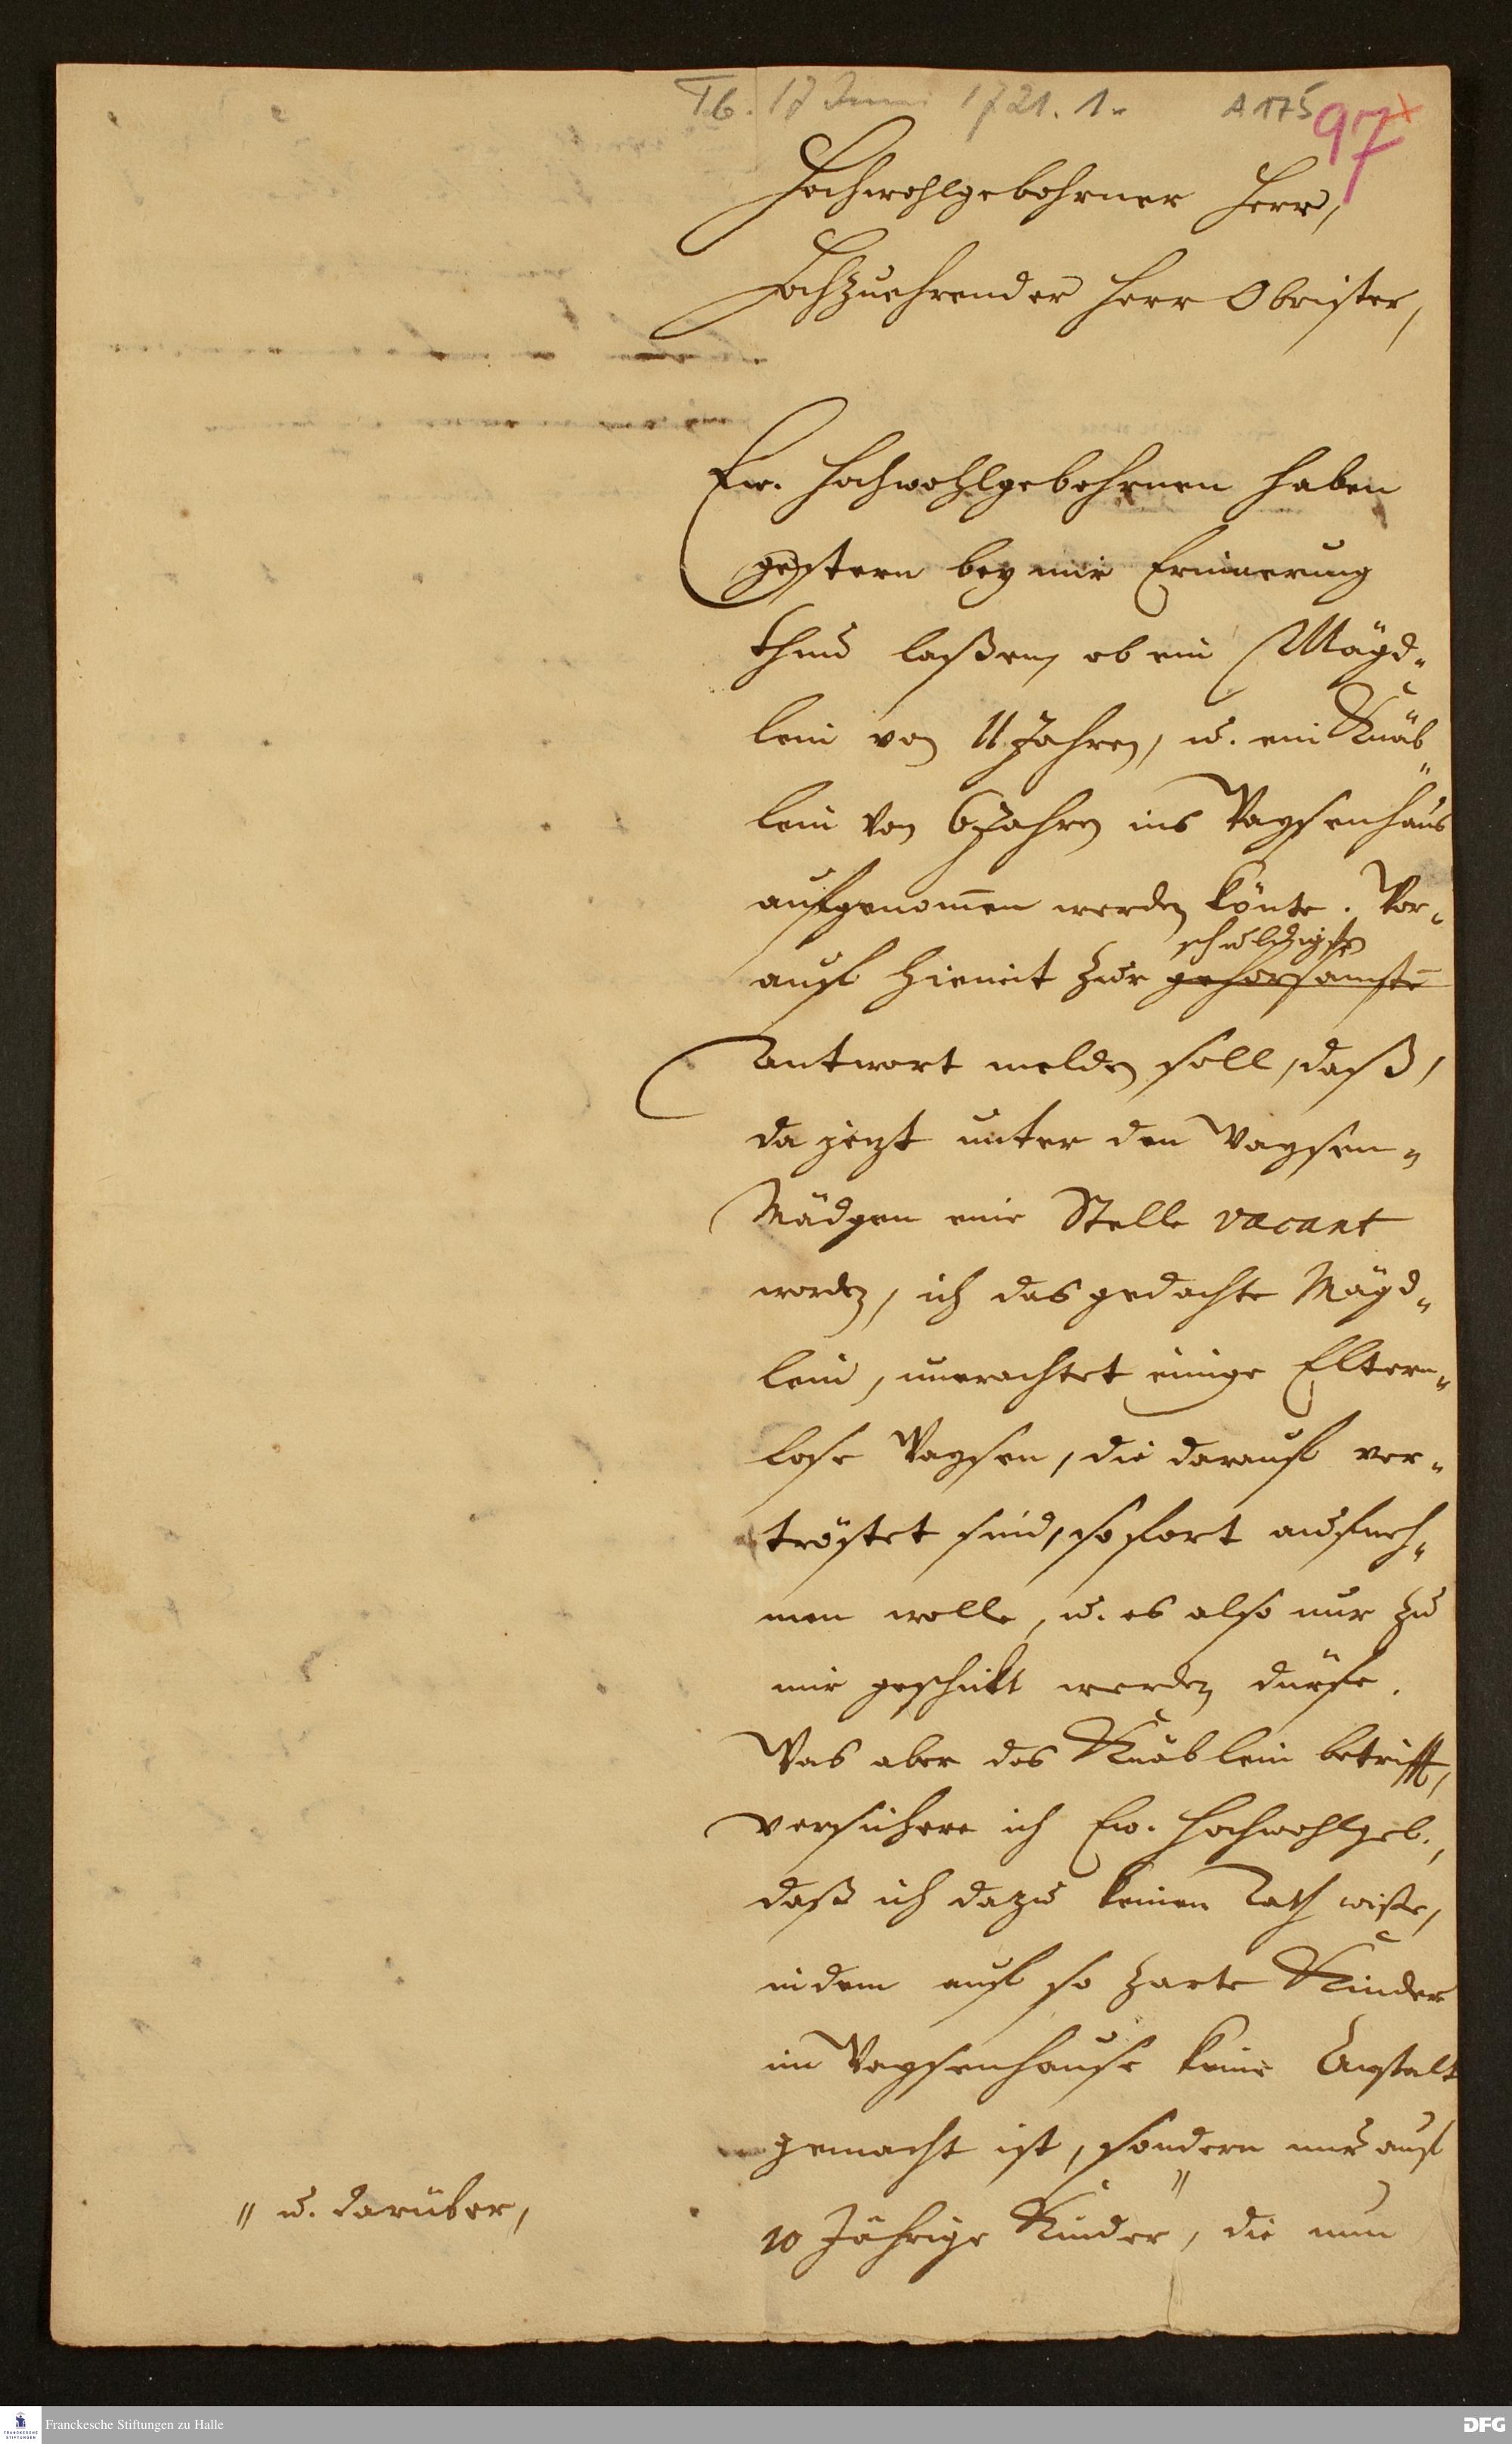 Tb. 17 Juni 1721. 1. A 175 97 x
Hochwohlgebohrner Herr,
Hochzuehrender Herr Obrister,
Ew. Hochwohlgebohrnen haben
gestern bey mir Erinnerung
thun laßen, ob ein Mägd-
lein von 11 Jahren, u. ein Knäb
lein von 6 Jahren ins Waysenhaus
aufgenom̄en werden könte. Wor-
auf hiemit zur gehorsamste
schuldigsten
Antwort melden soll, daß,
da jezt unter den Waysen-
Mädgen eine Stelle vacant
worden, ich das gedachte Mägd-
lein, unerachtet einige Eltern-
lose Waysen, die darauf ver-
tröstet sind, sofort aufneh-
men wolle, u. es also nur zu
mir geschickt werden dürfe.
Was aber das Knäblein betrifft,
versichere ich Ew. Hochwohlgeb.,
daß ich dazu keinen Rath wiße,
indem auf so zarte Kinder
im Waysenhause keine Anstalt
gemacht ist, sondern nur auf
10 Jährige " Kinder, die nun
" u. darüber,
Franckesche Stiftungen zu Halle
DFG